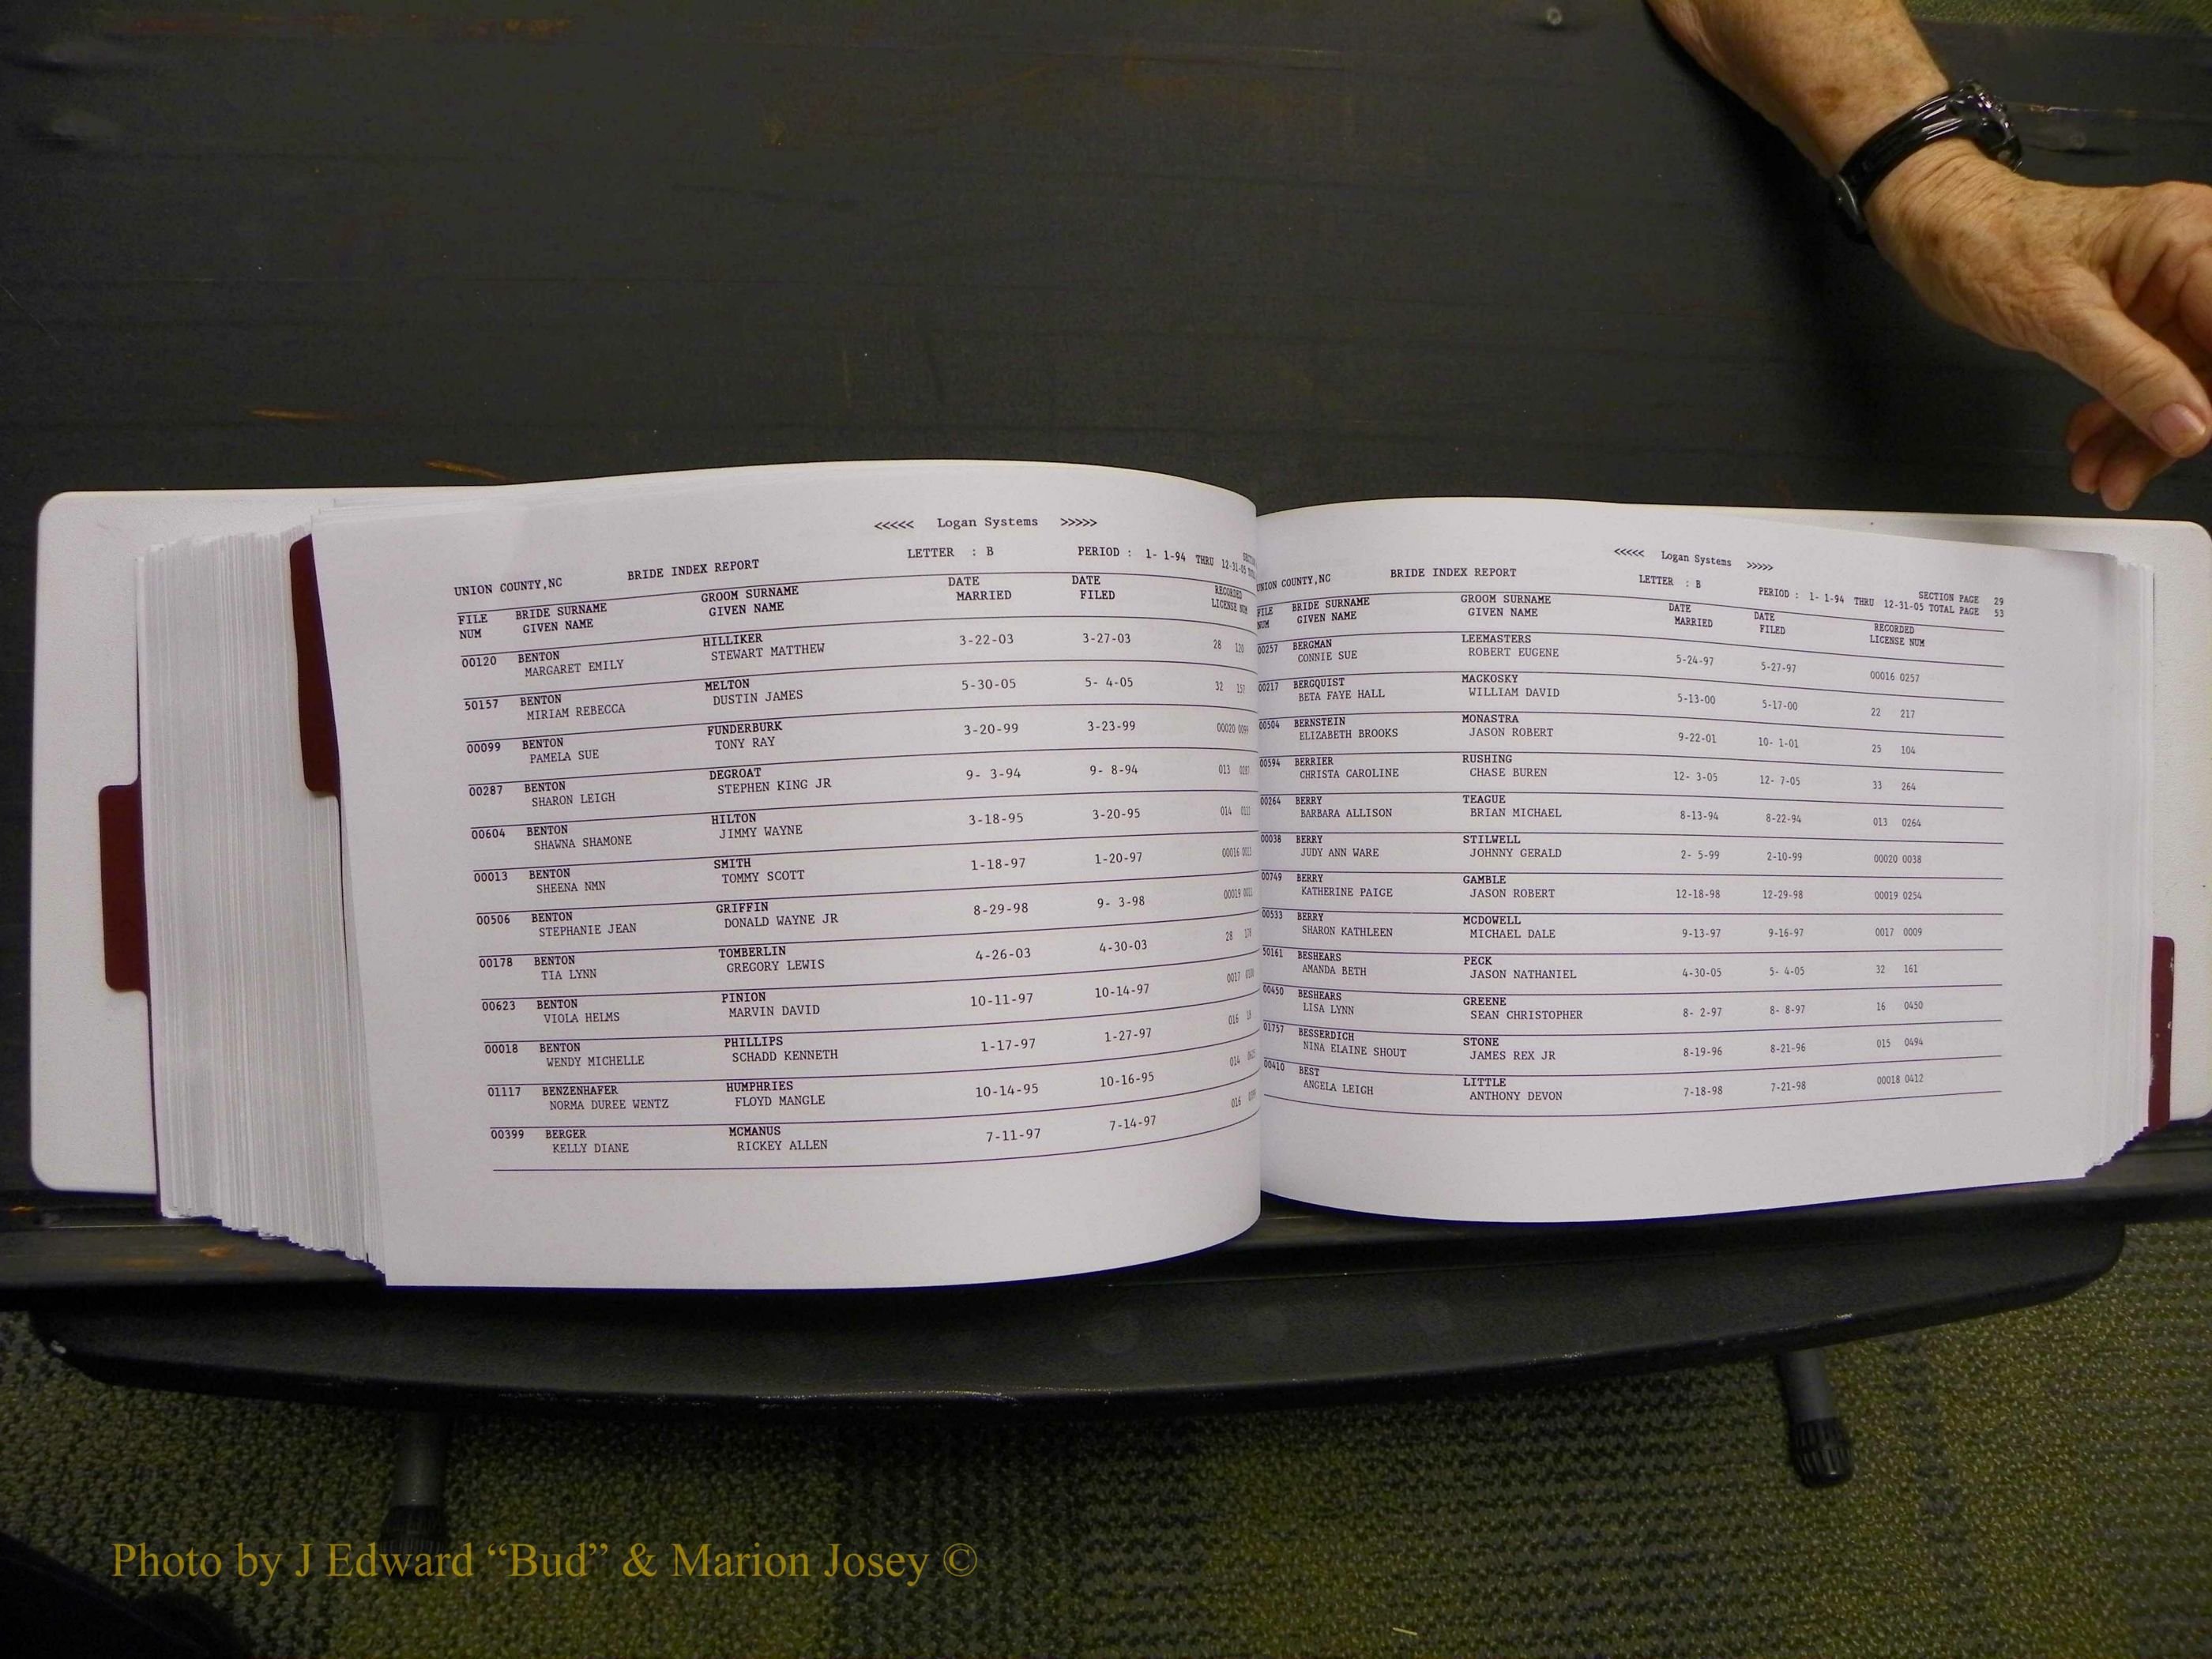 <<<<< Logan Systems >>>>>
UNION COUNTY,NC BRIDE INDEX REPORT LETTER : B PERIOD : 1- 1-94 THRU 12-31-05
FILE BRIDE SURNAME GROOM SURNAME DATE DATE RECORDED
NUM GIVEN NAME GIVEN NAME MARRIED FILED LICENSE NUM
00120 BENTON HILLIKER 3-22-03 3-27-03 28 120
MARGARET EMILY STEWART MATTHEW
50157 BENTON MELTON 5-30-05 5- 4-05 32 157
MIRIAM REBECCA DUSTIN JAMES
00099 BENTON FUNDERBURK 3-20-99 3-23-99 00020 0099
PAMELA SUE TONY RAY
00287 BENTON DEGROAT 9- 3-94 9- 8-94 013 0287
SHARON LEIGH STEPHEN KING JR
00604 BENTON HILTON 3-18-95 3-20-95 014
SHAWNA SHAMONE JIMMY WAYNE
00013 BENTON SMITH 1-18-97 1-20-97 00016 0013
SHEENA NMN TOMMY SCOTT
00506 BENTON GRIFFIN 8-29-98 9- 3-98 00019
STEPHANIE JEAN DONALD WAYNE JR
00178 BENTON TOMBERLIN 4-26-03 4-30-03 28 178
TIA LYNN GREGORY LEWIS
00623 BENTON PINION 10-11-97 10-14-97 0017
VIOLA HELMS MARVIN DAVID
00018 BENTON PHILLIPS 1-17-97 1-27-97 016 18
WENDY MICHELLE SCHADD KENNETH
01117 BENZENHAFER HUMPHRIES 10-14-95 10-16-95 014
NORMA DUREE WENTZ FLOYD MANGLE
00399 BERGER MCMANUS 7-11-97 7-14-97 016
KELLY DIANE RICKEY ALLEN
<<<<< Logan Systems >>>>>
UNION COUNTY,NC BRIDE INDEX REPORT LETTER : B PERIOD : 1- 1-94 THRU 12-31-05 SECTION PAGE 29
TOTAL PAGE 53
FILE BRIDE SURNAME GROOM SURNAME DATE DATE RECORDED
NUM GIVEN NAME GIVEN NAME MARRIED FILED LICENSE NUM
00257 BERGMAN LEEMASTERS 5-24-97 5-27-97 00016 0257
CONNIE SUE ROBERT EUGENE
00217 BERGQUIST MACKOSKY 5-13-00 5-17-00 22 217
BETA FAYE HALL WILLIAM DAVID
00504 BERNSTEIN MONASTRA 9-22-01 10- 1-01 25 104
ELIZABETH BROOKS JASON ROBERT
00594 BERRIER RUSHING 12- 3-05 12- 7-05 33 264
CHRISTA CAROLINE CHASE BUREN
00264 BERRY TEAGUE 8-13-94 8-22-94 013 0264
BARBARA ALLISON BRIAN MICHAEL
00038 BERRY STILWELL 2- 5-99 2-10-99 00020 0038
JUDY ANN WARE JOHNNY GERALD
00749 BERRY GAMBLE 12-18-98 12-29-98 00019 0254
KATHERINE PAIGE JASON ROBERT
00533 BERRY MCDOWELL 9-13-97 9-16-97 0017 0009
SHARON KATHLEEN MICHAEL DALE
50161 BESHEARS PECK 4-30-05 5- 4-05 32 161
AMANDA BETH JASON NATHANIEL
00450 BESHEARS GREENE 8- 2-97 8- 8-97 16 0450
LISA LYNN SEAN CHRISTOPHER
01757 BESSERDICH STONE 8-19-96 8-21-96 015 0494
NINA ELAINE SHOUT JAMES REX JR
00410 BEST LITTLE 7-18-98 7-21-98 00018 0412
ANGELA LEIGH ANTHONY DEVON
Photo by J Edward “Bud” & Marion Josey ©